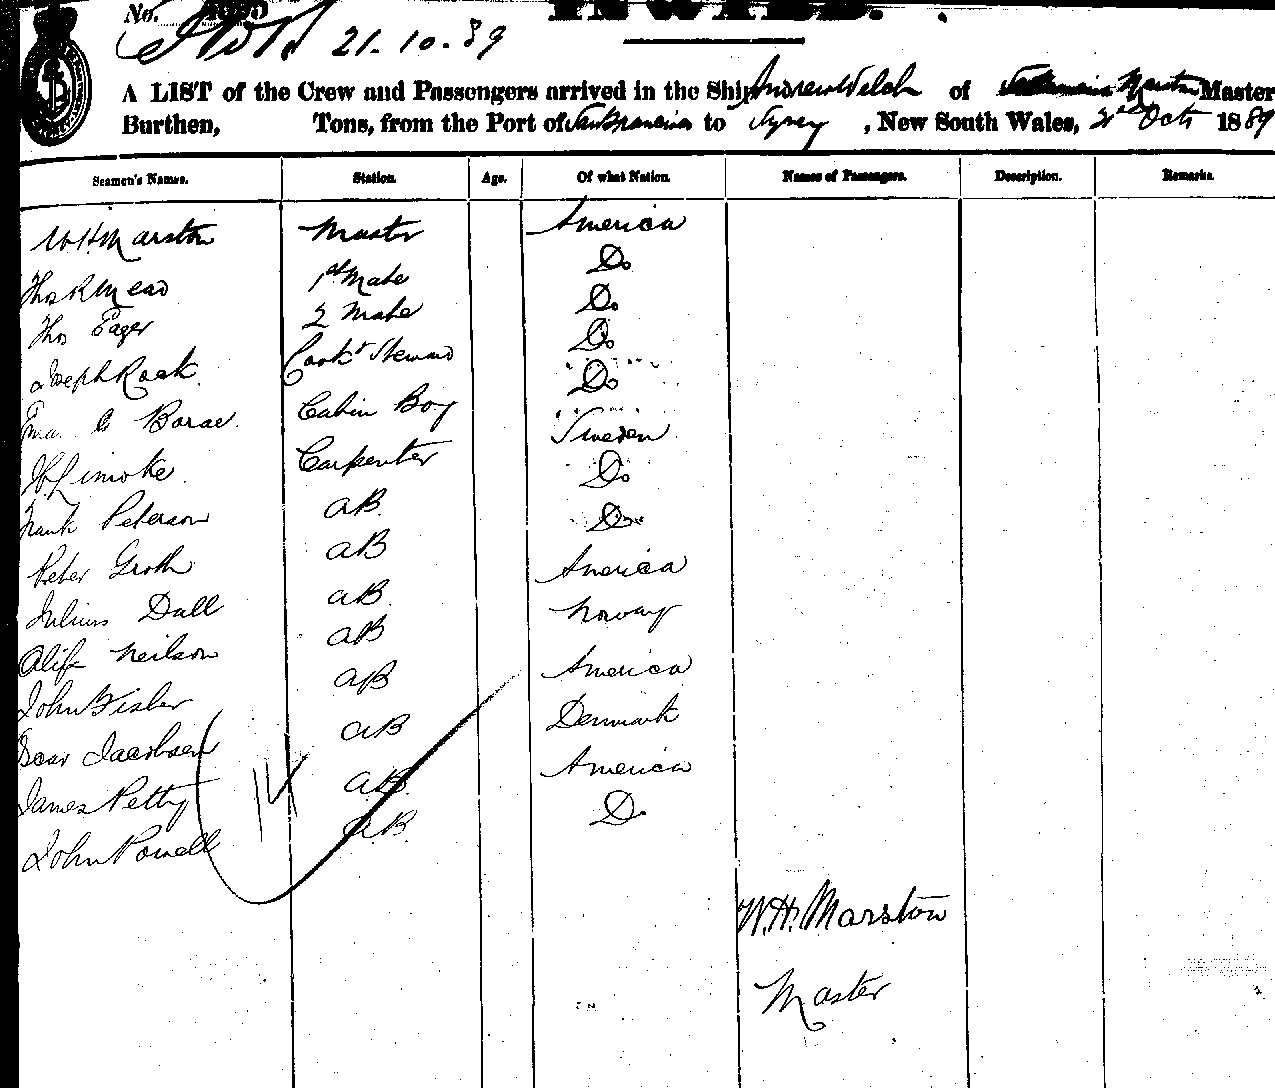 No.
INWARD.
21.10.89
A LIST of the Crew and Passengers arrived in the Ship Andrew Welch of Marston Master
Burthen, Tons, from the Port of San Francisco to Syney , New South Wales, Octr 1889
Seamen's Names. Station. Age. Of what Nation. Names of Passengers. Description. Remarks.
W H Marston Master America
Thos R Mead 1st Mate Do
Thos Eager 2 Mate Do
Joseph Rock Cook & Steward Do
Borae Cabin Boy Do
Carpenter Sweden
Frank Peterson AB Do
Peter Groth AB Do
Julius Dull AB America
Neilson AB Norway
John Fisher AB America
Oscar Jacobsen AB Denmark
James Petty AB America
John Powell AB Do
14
W. H. Marston
Master